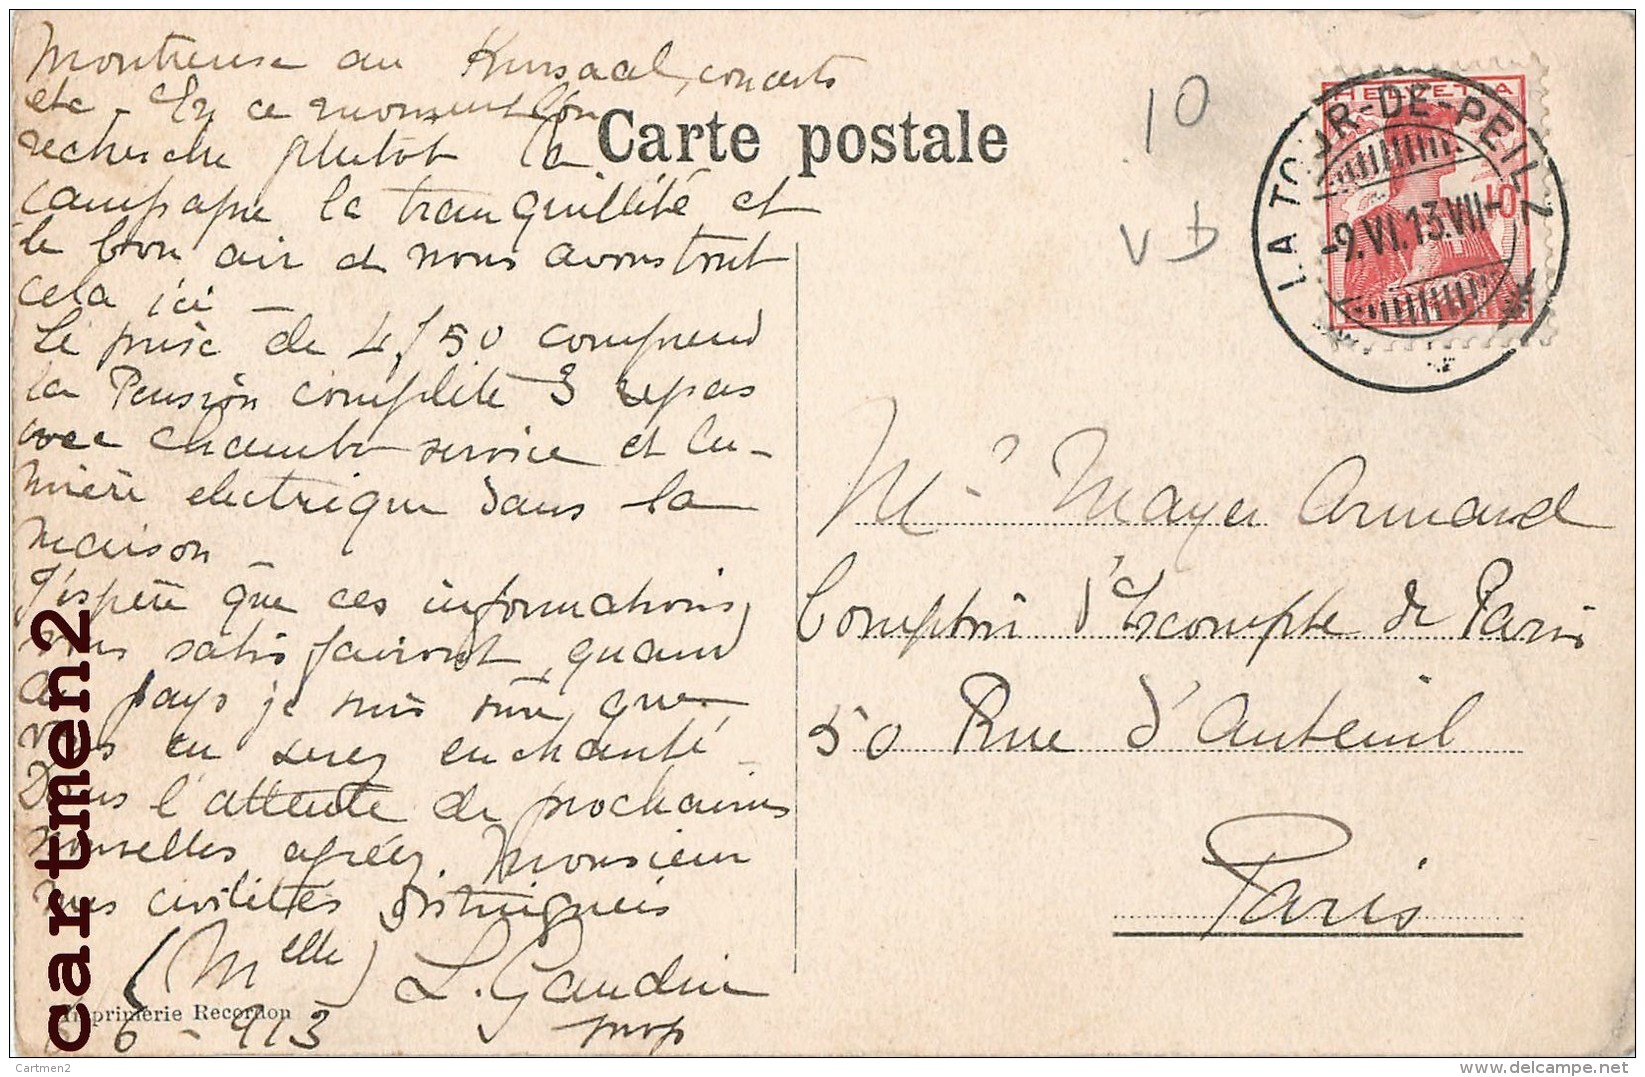 Montreuse au Kursaal, concerts
etc - En ce moment l'on
recherche plutôt la
campagne la tranquillité et
le bon air et nous avons tout
cela ici -
Le prix de 4f50 comprend
la Pension complète 3 repas
avec chambre service et lu-
mière electrique dans la
maison -
J'espère que ces informations
vous satisfairont, quand
au pays je suis sûre que
vous en serez enchanté -
Dans l'attente de prochaines
nouvelles agréez, Monsieur
nos civilités distinguées
(Melle) L. Gaudin
prop
6 - 913
Imprimerie Recordon
Carte postale
10
VD
HELVETIA
10
LA TOUR-DE-PEILZ
-9.VI.13.VII-
Mr Mayer Armand
Comptoir d'Escompte de Paris
50 Rue d'Auteuil
Paris
cartmen2
Cartmen2
delcampe.net